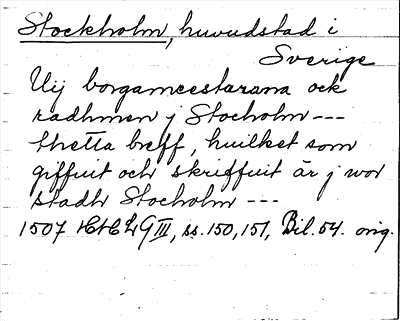 Stockholm, huvudstad i
Sverige
Vij borgameestarana ock
radhmen j Stocholm ---
thetta breff, huilket som
giffuit och skriffuit är j wor
stadh Stocholm ---
1507 III, ss. 150, 151, Bil. 54. orig.